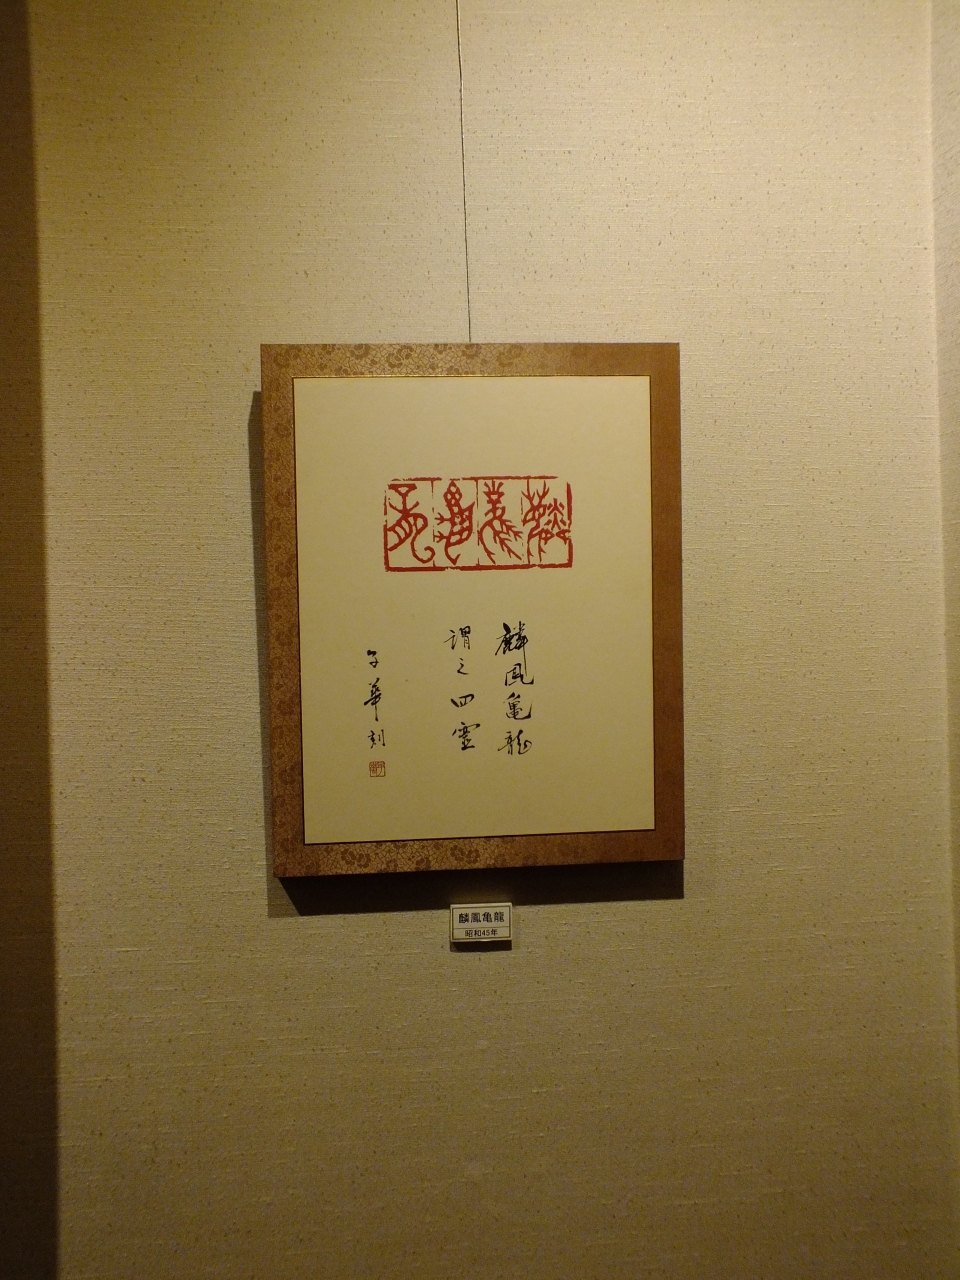 麟鳳亀龍
麟鳳亀龍
謂之四霊
子華刻
麟鳳亀龍
昭和45年